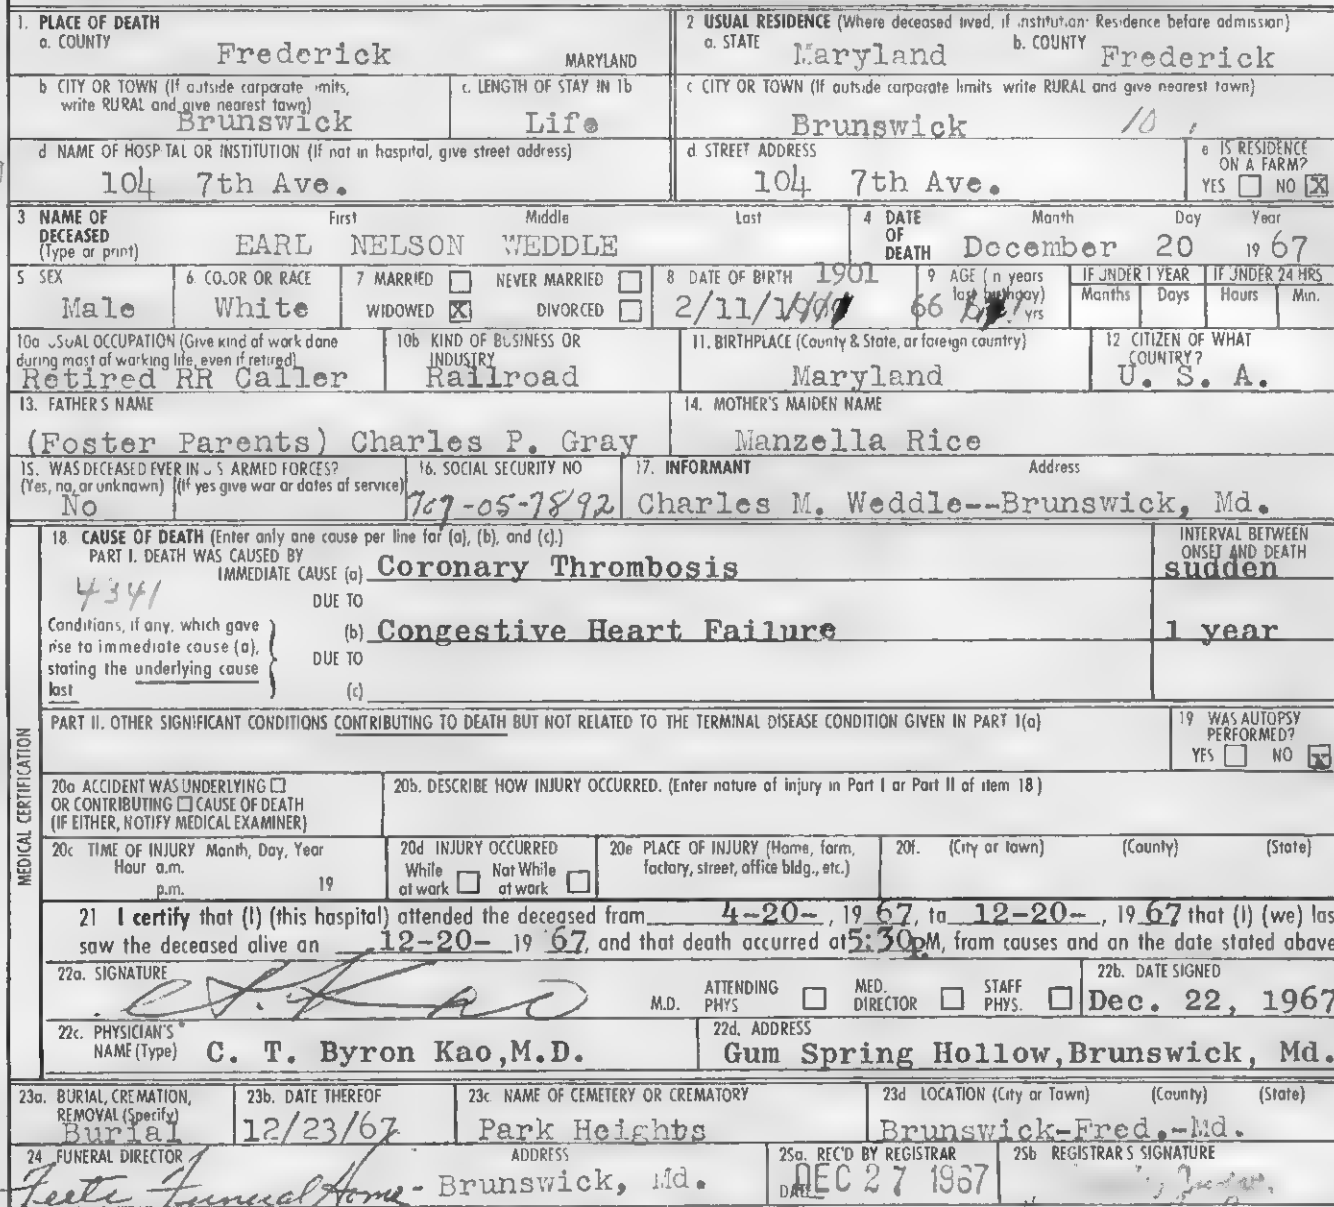 1. PLACE OF DEATH
a. COUNTY
Frederick
MARYLAND
2 USUAL RESIDENCE (Where deceased lived, if institution: Residence before admission)
a. STATE Maryland b. COUNTY Frederick
b CITY OR TOWN (If outside corporate limits, write RURAL and give nearest town)
Brunswick
c. LENGTH OF STAY IN 1b
Life
c CITY OR TOWN (If outside corporate limits write RURAL and give nearest town)
Brunswick 10
d NAME OF HOSPITAL OR INSTITUTION (If not in hospital, give street address)
104 7th Ave.
d. STREET ADDRESS
104 7th Ave.
e IS RESIDENCE ON A FARM?
YES NO X
3 NAME OF DECEASED (Type or print)
First Middle Last
EARL NELSON WEDDLE
4 DATE OF DEATH
Month Day Year
December 20 19 67
5 SEX
Male
6 COLOR OR RACE
White
7 MARRIED NEVER MARRIED
WIDOWED X DIVORCED
8 DATE OF BIRTH 1901
2/11/
9 AGE (In years last birthday)
66 yrs
IF UNDER 1 YEAR
Months Days
IF UNDER 24 HRS
Hours Min.
10a USUAL OCCUPATION (Give kind of work done during most of working life, even if retired)
Retired RR Caller
10b KIND OF BUSINESS OR INDUSTRY
Railroad
11. BIRTHPLACE (County & State, or foreign country)
Maryland
12 CITIZEN OF WHAT COUNTRY?
U. S. A.
13. FATHER'S NAME
(Foster Parents) Charles P. Gray
14. MOTHER'S MAIDEN NAME
Manzella Rice
15. WAS DECEASED EVER IN U S ARMED FORCES?
(Yes, no, or unknown) (If yes give war or dates of service)
No
16. SOCIAL SECURITY NO
707-05-7892
17. INFORMANT Address
Charles M. Weddle--Brunswick, Md.
MEDICAL CERTIFICATION
18 CAUSE OF DEATH (Enter only one cause per line for (a), (b), and (c).)
PART I. DEATH WAS CAUSED BY
IMMEDIATE CAUSE (a) Coronary Thrombosis
INTERVAL BETWEEN ONSET AND DEATH
sudden
4341
DUE TO
Conditions, if any, which gave rise to immediate cause (a), stating the underlying cause last
(b) Congestive Heart Failure
1 year
DUE TO
(c)
PART II. OTHER SIGNIFICANT CONDITIONS CONTRIBUTING TO DEATH BUT NOT RELATED TO THE TERMINAL DISEASE CONDITION GIVEN IN PART 1(a)
19 WAS AUTOPSY PERFORMED?
YES NO X
20a ACCIDENT WAS UNDERLYING
OR CONTRIBUTING CAUSE OF DEATH
(IF EITHER, NOTIFY MEDICAL EXAMINER)
20b. DESCRIBE HOW INJURY OCCURRED. (Enter nature of injury in Part I or Part II of item 18)
20c TIME OF INJURY Month, Day, Year
Hour a.m.
p.m. 19
20d INJURY OCCURRED
While at work Not While at work
20e PLACE OF INJURY (Home, farm, factory, street, office bldg., etc.)
20f. (City or town) (County) (State)
21 I certify that (I) (this hospital) attended the deceased from 4-20-, 19 67, to 12-20-, 19 67 that (I) (we) las
saw the deceased alive on 12-20- 19 67, and that death occurred at 5:30pM, from causes and on the date stated above
22a. SIGNATURE
M.D. ATTENDING PHYS MED. DIRECTOR STAFF PHYS.
22b. DATE SIGNED
Dec. 22, 1967
22c. PHYSICIAN'S NAME (Type) C. T. Byron Kao,M.D.
22d. ADDRESS
Gum Spring Hollow,Brunswick, Md.
23a. BURIAL, CREMATION, REMOVAL (Specify)
Burial
23b. DATE THEREOF
12/23/67
23c NAME OF CEMETERY OR CREMATORY
Park Heights
23d LOCATION (City or Town) (County) (State)
Brunswick-Fred.-Md.
24 FUNERAL DIRECTOR ADDRESS
Feete Funeral Home - Brunswick, Md.
25a. REC'D BY REGISTRAR
DATE DEC 27 1967
25b REGISTRARS SIGNATURE